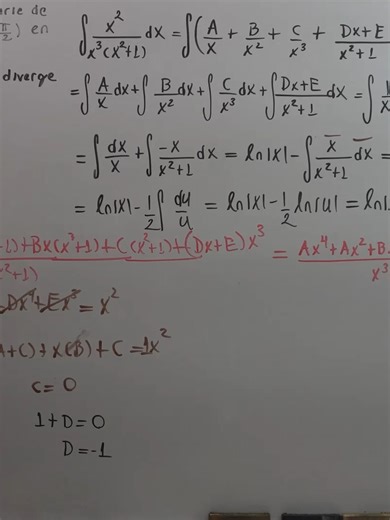 arie de
π/2) en
∫ x²/(x³(x²+1)) dx = ∫(A/x + B/x² + C/x³ + (Dx+E)/(x²+1)
diverge
= ∫ A/x dx + ∫ B/x² dx + ∫ C/x³ dx + ∫ (Dx+E)/(x²+1) dx = ∫
= ∫ dx/x + ∫ -x/(x²+1) dx = ln|x| - ∫ x/(x²+1) dx =
= ln|x| - 1/2 ∫ du/u = ln|x| - 1/2 ln|u| = ln|
+1)+Bx(x²+1)+C(x²+1)+(Dx+E)x³ = Ax⁴+Ax²+B
x²+1) x³
Dx⁴+Ex³ = x²
A+C)+x(B)+C=1x²
C=0
1+D=0
D=-1